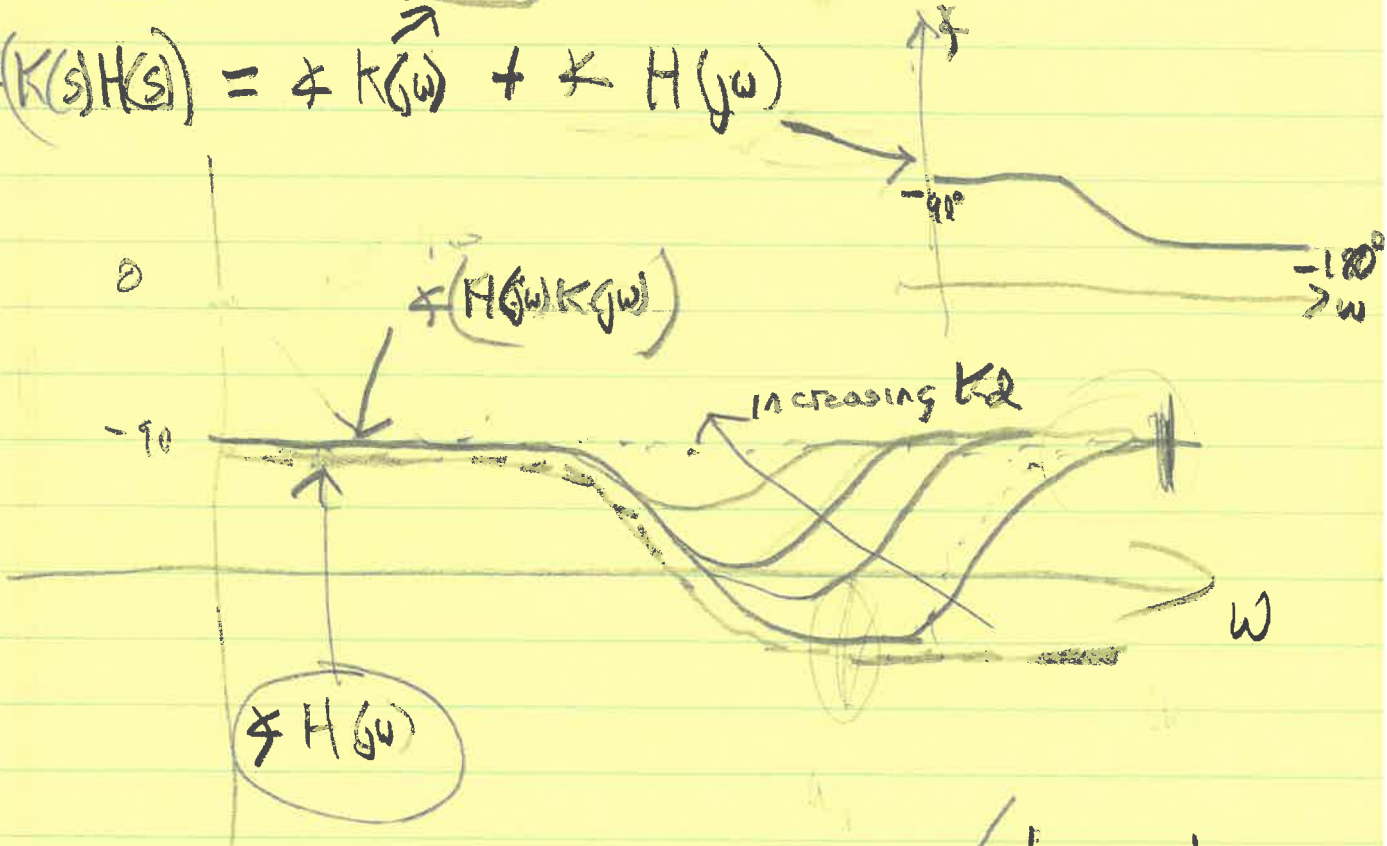 ∡(K(s)H(s)) = ∡ K(jω) + ∡ H(jω)
∡
-90°
-180°
> ω
0
∡(H(jω)K(jω))
increasing Kd
-90
ω
∡ H(jω)